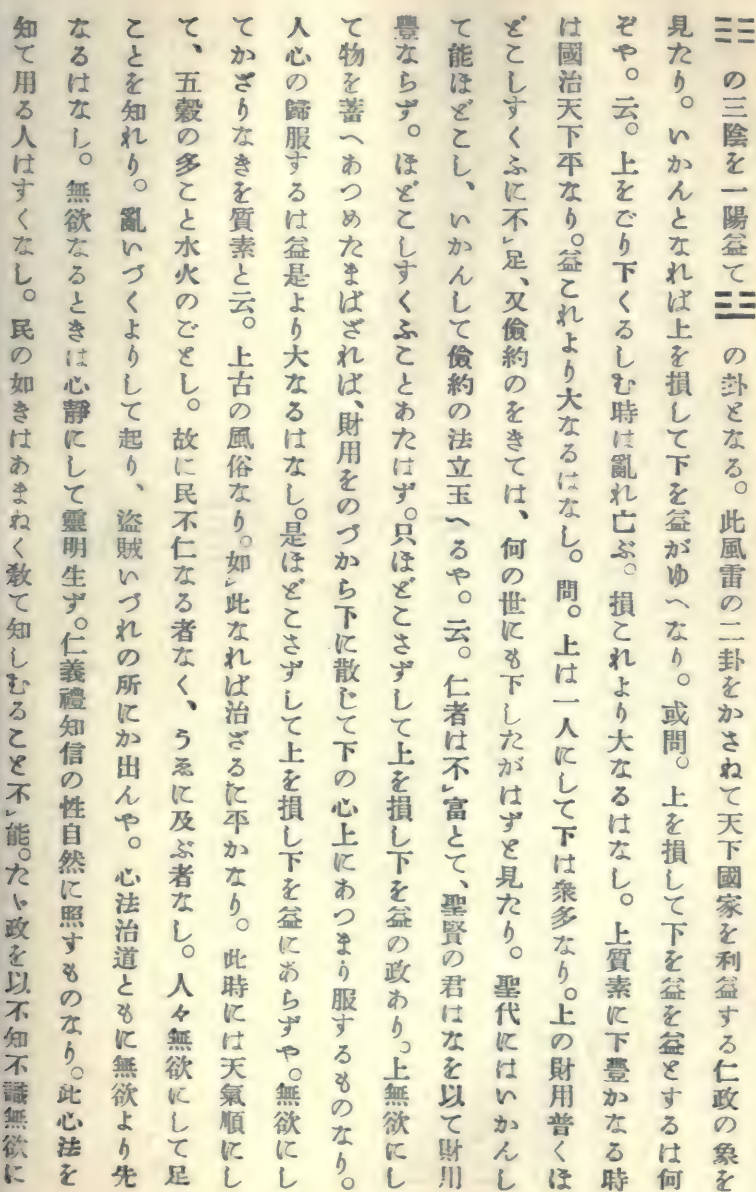 ☷の三陰を一陽益て☳の卦となる。此風雷の二卦をかさねて天下國家を利益する仁政の象を
見たり。いかんとなれば上を損して下を益がゆへなり。或問。上を損して下を益を益とするは何
ぞや。云。上をごり下くるしむ時は亂れ亡ぶ。損これより大なるはなし。上質素に下豐かなる時
は國治天下平なり。益これより大なるはなし。問。上は一人にして下は衆多なり。上の財用普くほ
どこしすくふに不㆑足、又儉約のをきては、何の世にも下したがはずと見たり。聖代にはいかんし
て能ほどこし、いかんして儉約の法立玉へるや。云。仁者は不㆑富とて、聖賢の君はなを以て財用
豐ならず。ほどこしすくふことあたはず。只ほどこさずして上を損し下を益の政あり。上無欲にし
て物を蓄へあつめたまはざれば、財用をのづから下に散じて下の心上にあつまり服するものなり。
人心の歸服するは益是より大なるはなし。是ほどこさずして上を損し下を益にあらずや。無欲にし
てかざりなきを質素と云。上古の風俗なり。如㆑此なれば治ざるに平かなり。此時には天氣順にし
て、五穀の多こと水火のごとし。故に民不仁なる者なく、うゑに及ぶ者なし。人々無欲にして足
ことを知れり。亂いづくよりして起り、盜賊いづれの所にか出んや。心法治道ともに無欲より先
なるはなし。無欲なるときは心靜にして靈明生ず。仁義禮知信の性自然に照すものなり。此心法を
知て用る人はすくなし。民の如きはあまねく敎て知しむること不㆑能。たゝ政を以不知不識無欲に